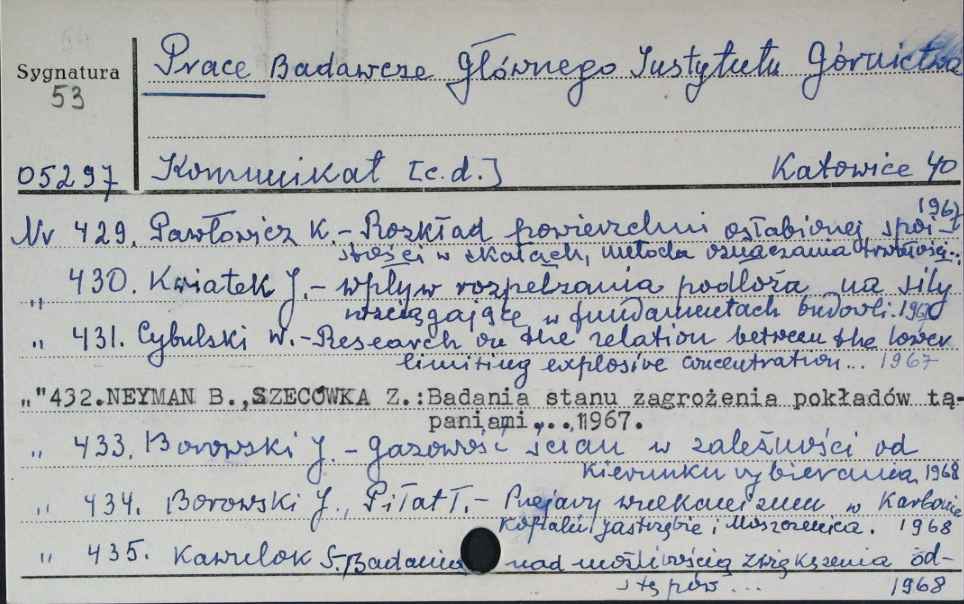 Sygnatura
53
Prace Badawcze Głównego Instytutu Górnictwa
05297
Komunikat [c.d.] Katowice 40
1967
Nr 429. Pawłowicz K. - Rozkład powierzchni osłabionej spoi-
stości w skałach, metoda oznaczania trwałości...
„ 430. Kwiatek J. - wpływ rozpełzania podłoża na siły
rozciągające w fundamentach budowli. 1967
„ 431. Cybulski W. - Research on the relation between the lower
limiting explosive concentration... 1967
„"432.NEYMAN B.,SZECÓWKA Z.:Badania stanu zagrożenia pokładów tą-
paniami,..1967.
„ 433. Borowski J. - Gazowość ścian w zależności od
kierunku wybierania 1968
„ 434. Borowski J., Piłat T. - Przejawy wulkanizmu w Karbonie
Kopalń Jastrzębie i Moszczenica. 1968
„ 435. Kawulok S. Badania nad możliwością zwiększenia od-
stępów ... 1968